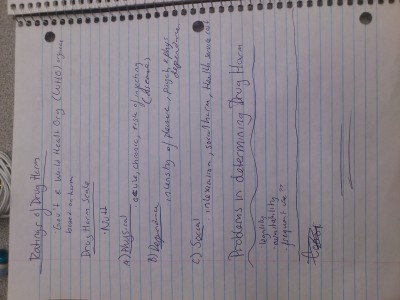 Ratings of Drug Harm
Gov't & World Health Org (WHO)
based on harm
Drug Harm Scale
- Nutt
A) Physical
acute, chronic, risk of injecting
(disease)
B) Dependence
intensity of pleasure, psych & phys
dependence
C) Social
intoxication, social harm, Health service cost
Problems in determining Drug Harm
legality
availability
frequent use